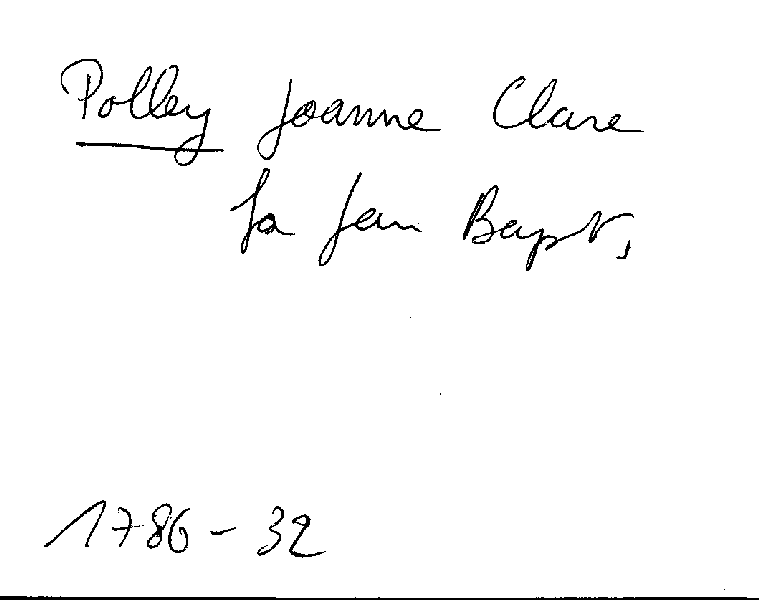 Polley Joanne Clare
fa Jean Bapt,
1786-32